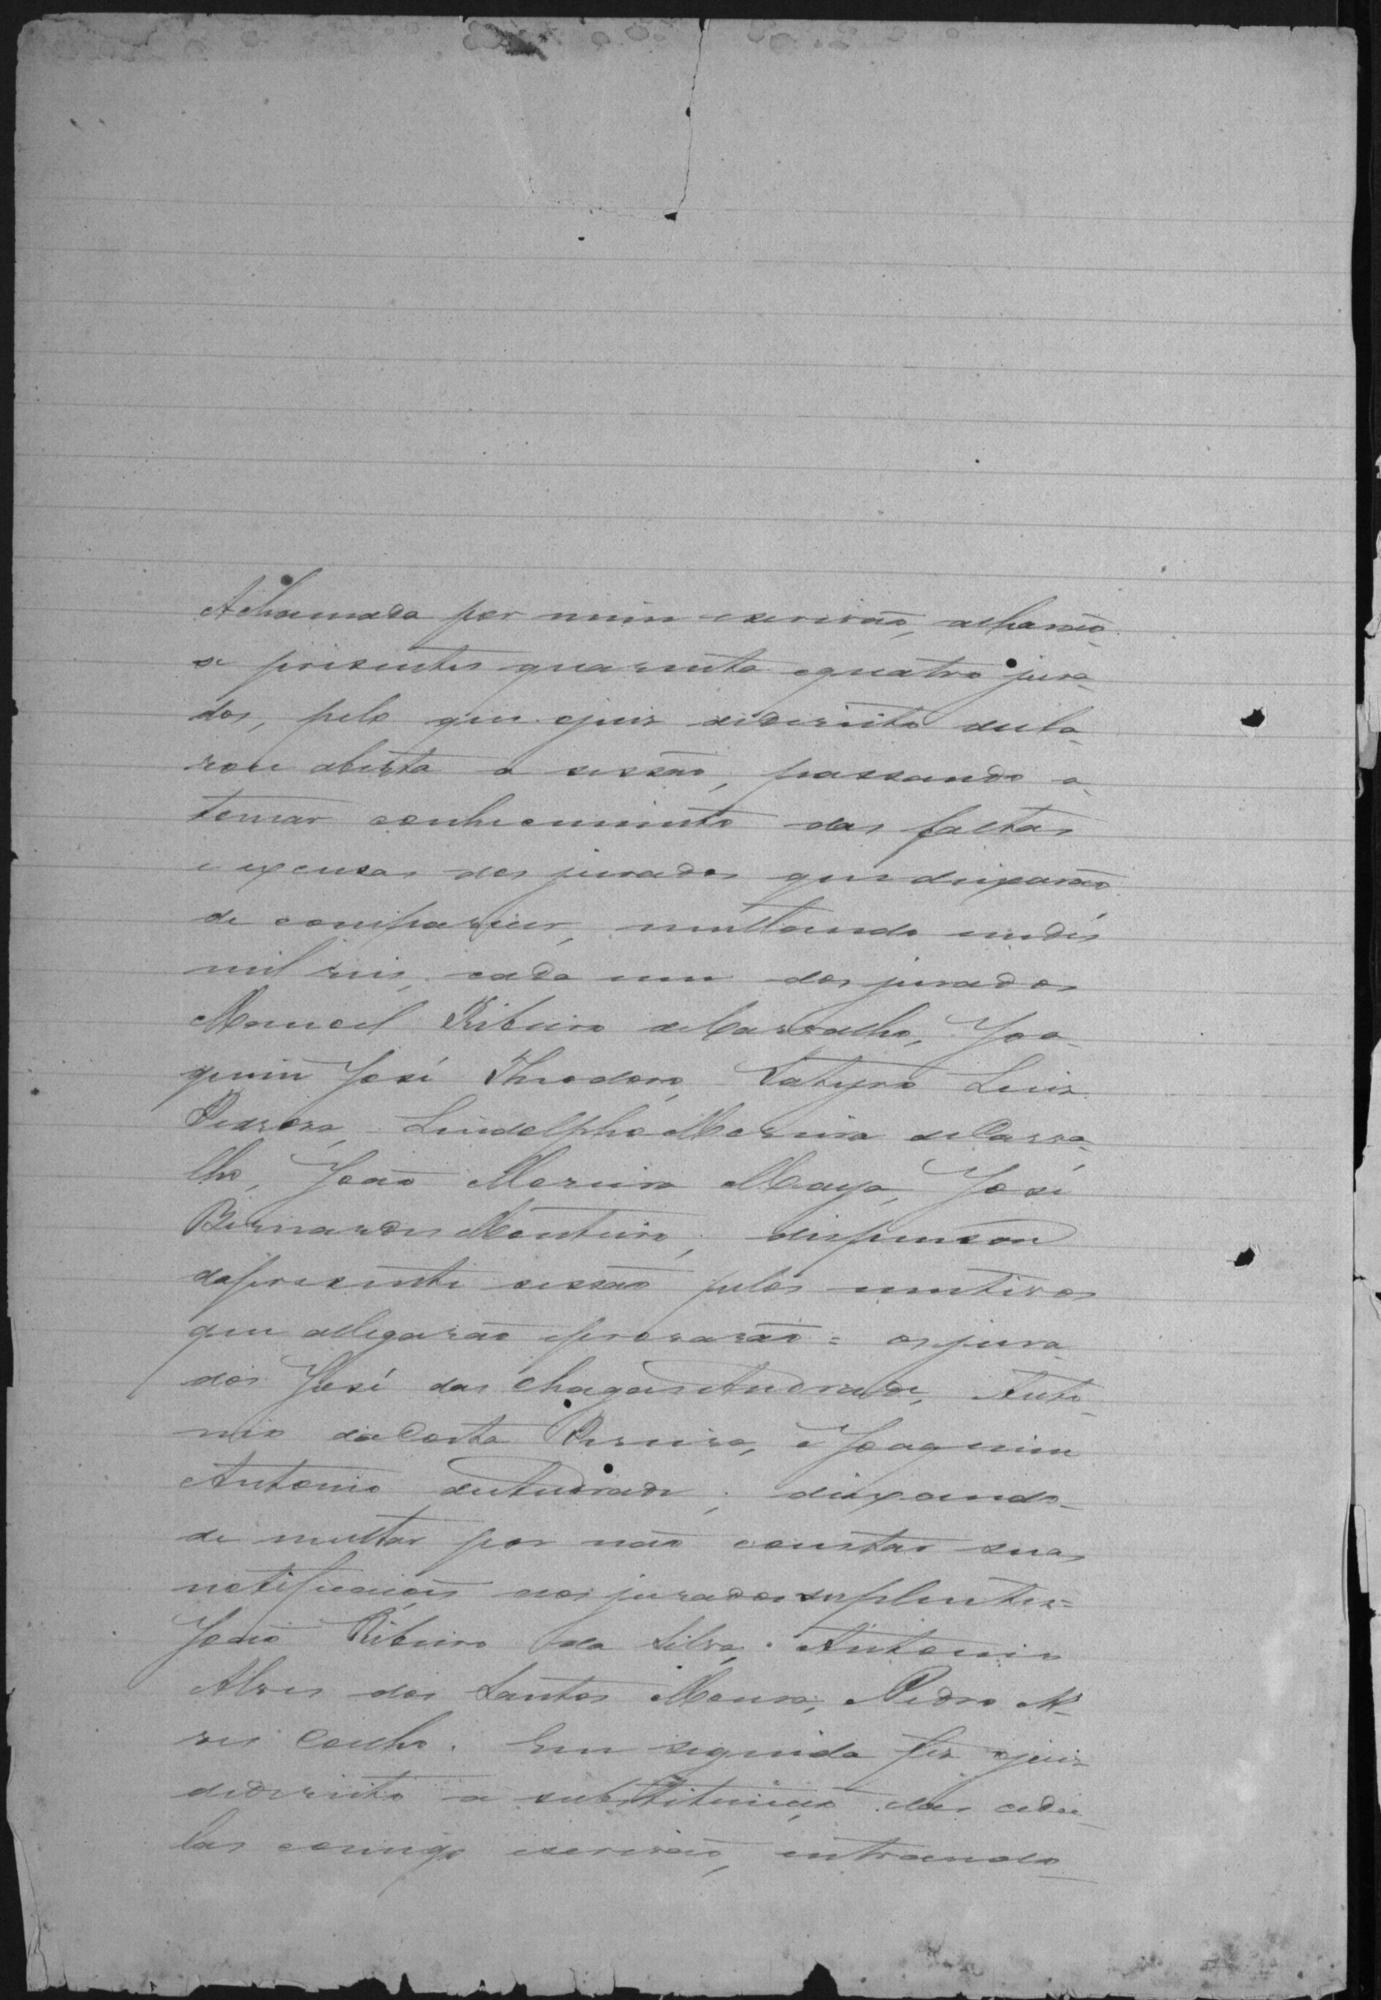 A chamada por mim escrivão, acharão-
se presentes quarenta e quatro jura-
dos, pelo que o juiz de direito decla-
rou aberta a sessão, passando a
tomar conhecimento das faltas
e excusas dos jurados que deixarão
de comparecer, multando em dez
mil reis, cada um dos jurados
Manoel Ribeiro de Carvalho, Joa-
quim José Theodoro, Satyro Luiz
Pedroso, Lindolpho Moreira de Carva-
lho, João Moreira Maya, José
Bernardes Monteiro; dispensou
da presente sessão pelos motivos
que allegarão e provarão = os jura-
dos José das Chagas Andrade, Anto-
nio da Costa Pereira, e Joaquim
Antonio de Andrade; deixando
de multar por não constar suas
notificações aos jurados supplentes =
João Ribeiro da Silva, Antonio
Alves dos Santos Moura, Pedro Al-
ves Coelho. Em seguida fez o juiz
de direito a substituição das cedu-
las comigo escrivão, entrando